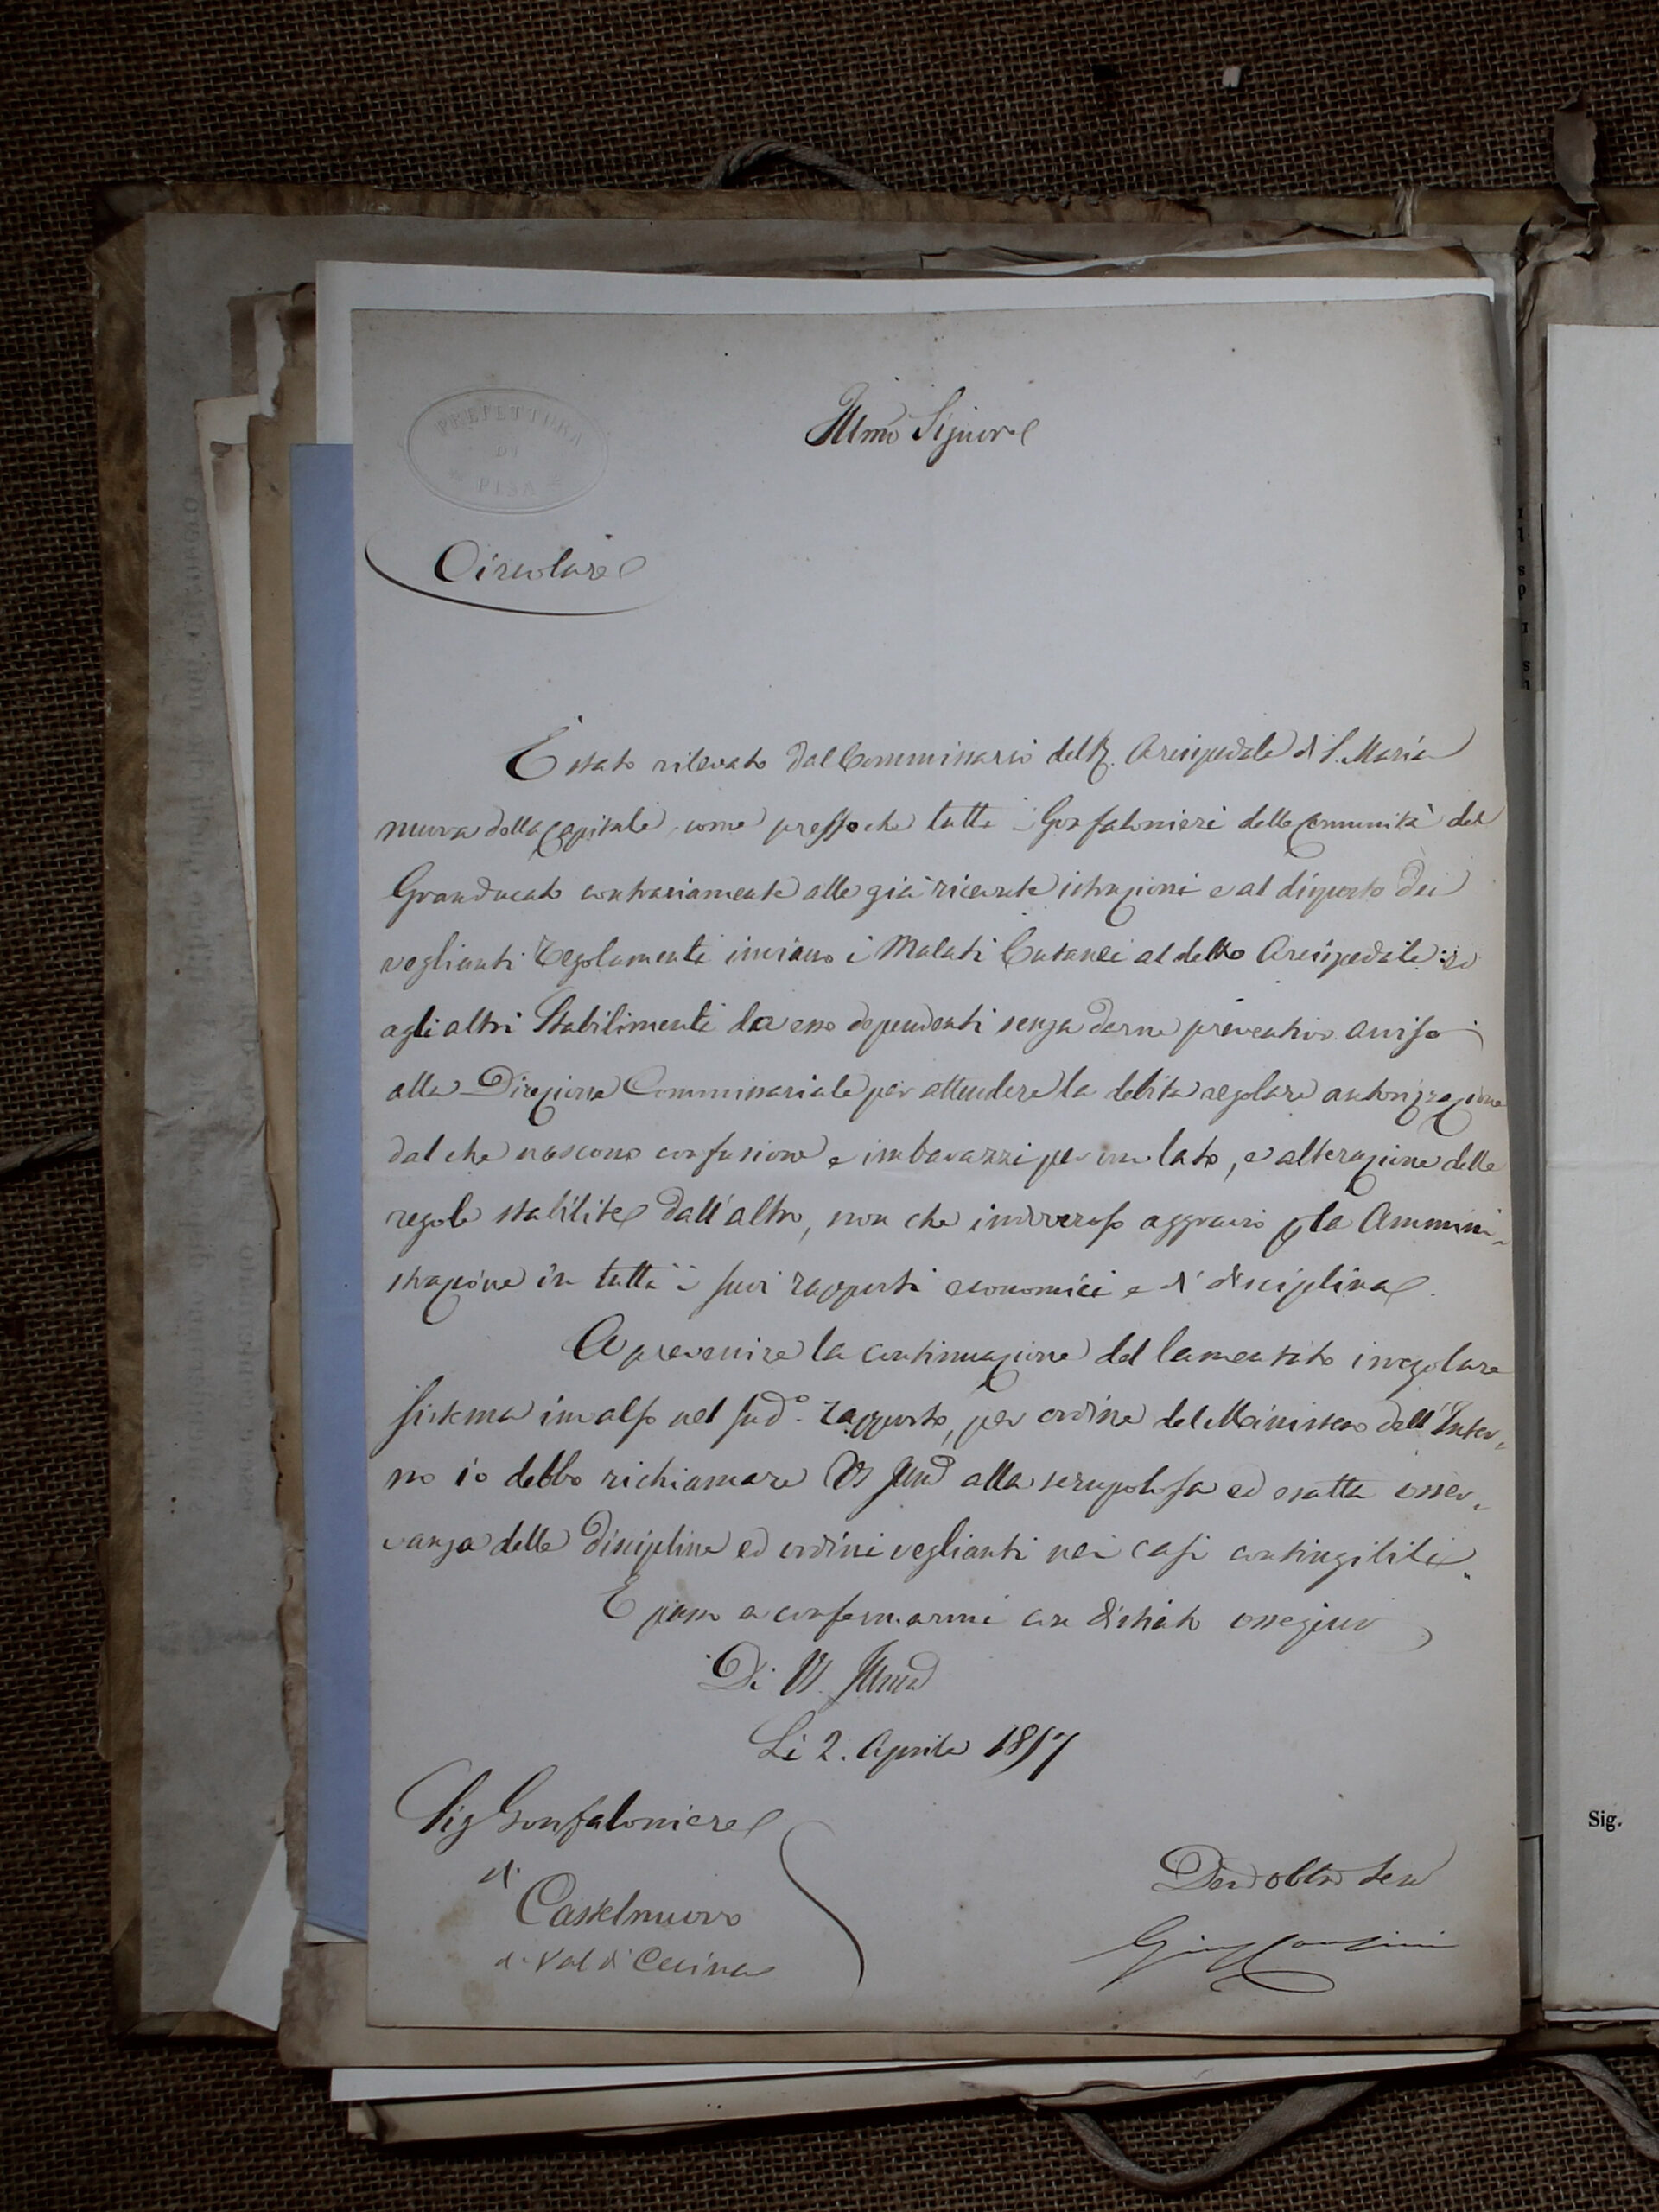 PREFETTURA
DI
PISA
Illmo Signore
Circolare
È stato rilevato dal Commissario del R. Arcispedale di S. Maria
nuova della Capitale, come pressoche tutti i Gonfalonieri delle Comunità del
Granducato contrariamente alle già ricevute istruzioni e al disposto dei
veglianti Regolamenti inviano i Malati Cutanei al detto Arcispedale ed
agli altri Stabilimenti da esso dependenti senza darne preventivo avviso
alla Direzione Commissariale per attendere la debita regolare autorizzazione
dal che nascono confusione e imbarazzi per un lato, e alterazione delle
regole stabilite dall'altro, non che indiveroso aggravio p la Ammini-
strazione in tutti i suoi rapporti economici e di disciplina.
A prevenire la continuazione del lamentato irregolare
sistema invalso nel sud.o rapporto, per ordine del Ministero dell'Inter-
no io debbo richiamare VS Illma alla scrupolosa ed esatta osser-
vanza delle discipline ed ordini veglianti nei casi contingibili.
E passo a confermarmi con distinto ossequio
Di VS. Illma
Li 2. Aprile 1857
Sig Gonfaloniere
di
Castelnuovo
di Val di Cecina
Dev obblmo Ser
Sig.